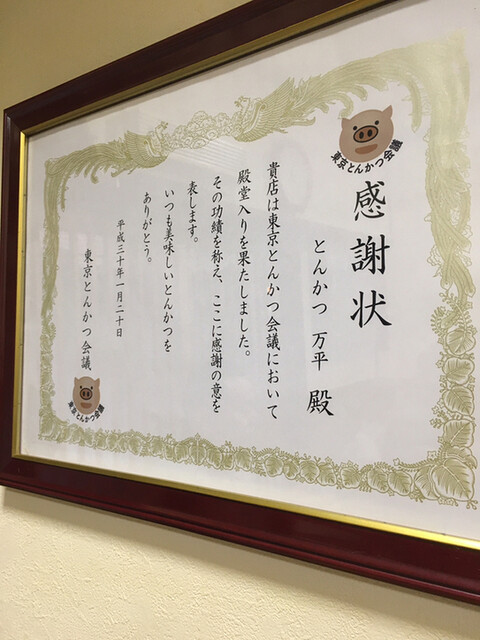 東京とんかつ会議
感謝状
とんかつ 万平 殿
貴店は東京とんかつ会議において
殿堂入りを果たしました。
その功績を称え、ここに感謝の意を
表します。
いつも美味しいとんかつを
ありがとう。
平成三十年一月二十日
東京とんかつ会議
東京とんかつ会議